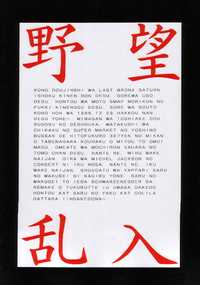 野望
KONO DOUJINSHI WA LAST BRONX SATURN
ISHOKU KINEN BON DESU. SOREWA UGO
DESU. HONTOU WA MOTO SMAP MORIKUN NO
FUKKI KINENDOU DESU. SORE WA SOUTO
KONO HON WA 1996.12.29.HAKKOU NAN
DESU YONE. MINASAN WA TOSHIAKE DOU
SUGOSU NO DESHOUKA. WATAKUSHI WA
CHIKAKU NO SUPER MARKET NO TOSHINO
BUSSAN DE HITOFUKURO 38TYEN NO MIKAN
O TABENASARA KOUHAKU O MIYOU TO OMOI
MASU. OMEATE WA MOCHIRON AKAGRA HE
TOMO CHAN DESU. NANTE NE. MIRU WAKE
NAIJAN. DIKA WA MICHEL JACKSON NO
CONCERT NI IKU NOSA. NANTE NE. IKU
WAKE NAIJAN. SHOUGATU WA YAPPARI SARU
NO WAKUSEI NI KAGIRU YONE. SARU NO
WAKUSEI TO IEBA SCHWARZENEGGER GA
REMAKE O TUKURUTTE IU UWASA DAKEDO
HONTOU KAY SARU NO YAKU KAT GOLILA
DATTARA IINDAKEDONA~.
乱入